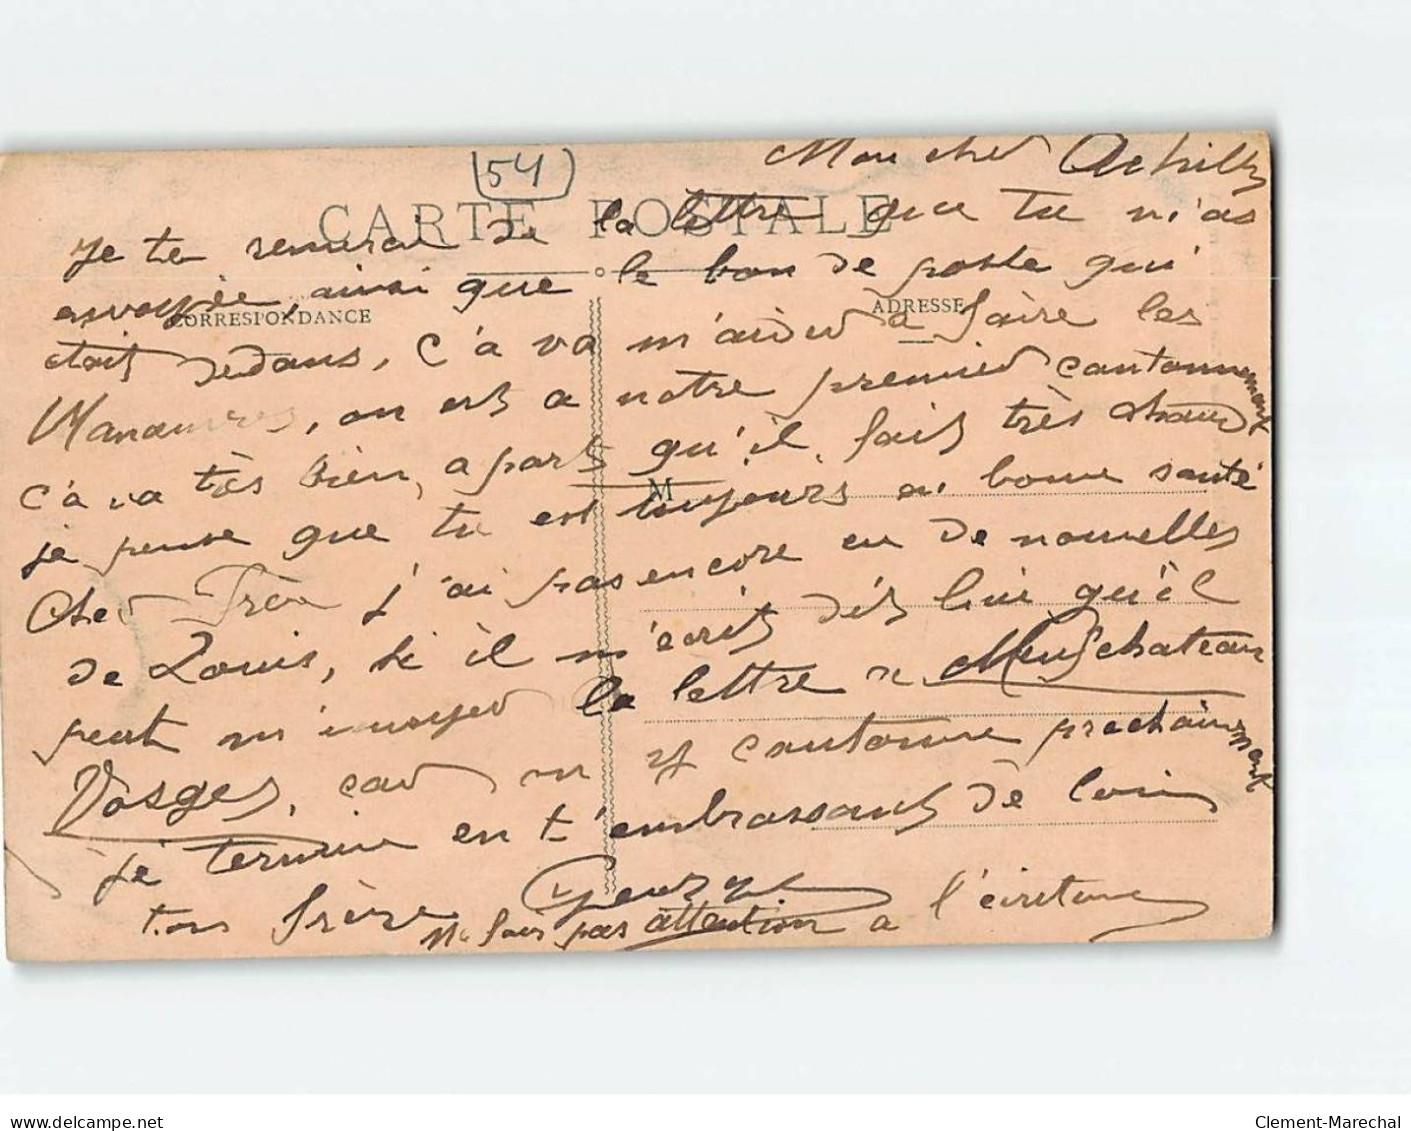 (54)
Mon cher Achille
CARTE POSTALE
Je te remerci de la lettre que tu m'as
envoyée, ainsi que le bon de poste qui
CORRESPONDANCE
ADRESSE
était dedans, c'a va m'aider a faire les
Manœuvres, on est a notre premier cantonnement
c'a va très bien, a part qu'il fait très chaud
M
je pense que tu est toujours en bonne santé
Cher Frère j'ai pas encore eu de nouvelles
de Louis, si il m'ecrit dis lui qu'il
peut m'envoyer la lettre a Neufchateau
Vosges, car on y cantonne prochainement
je termine en t'embrassant de loin
ton frère George
Ne fais pas attention a l'écriture
www.delcampe.net
Clement-Marechal